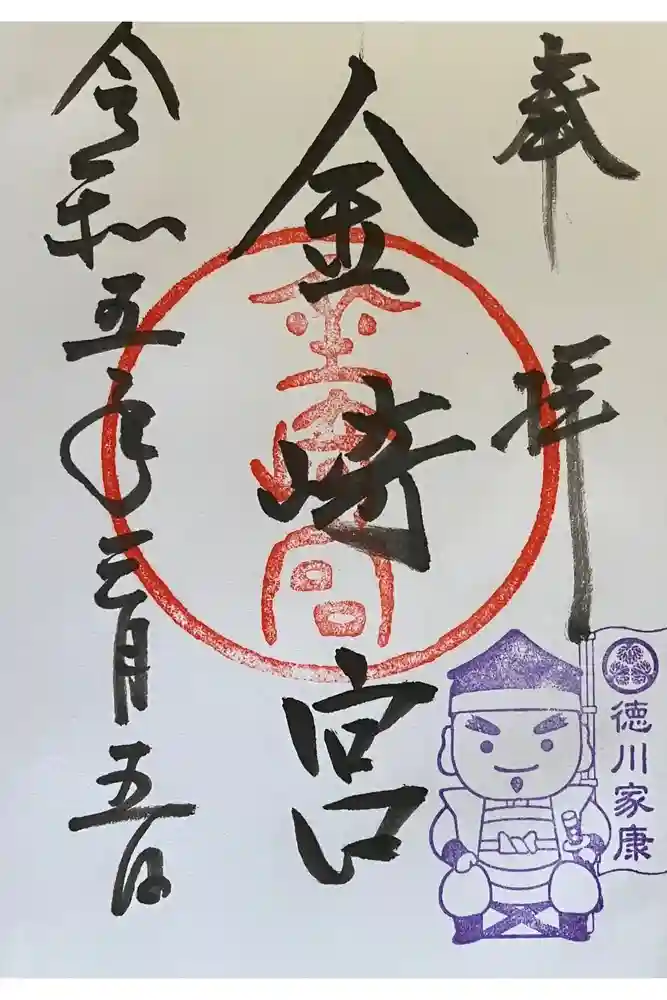 奉拝
金崎宮
金崎宮
徳川家康
令和五年三月五日